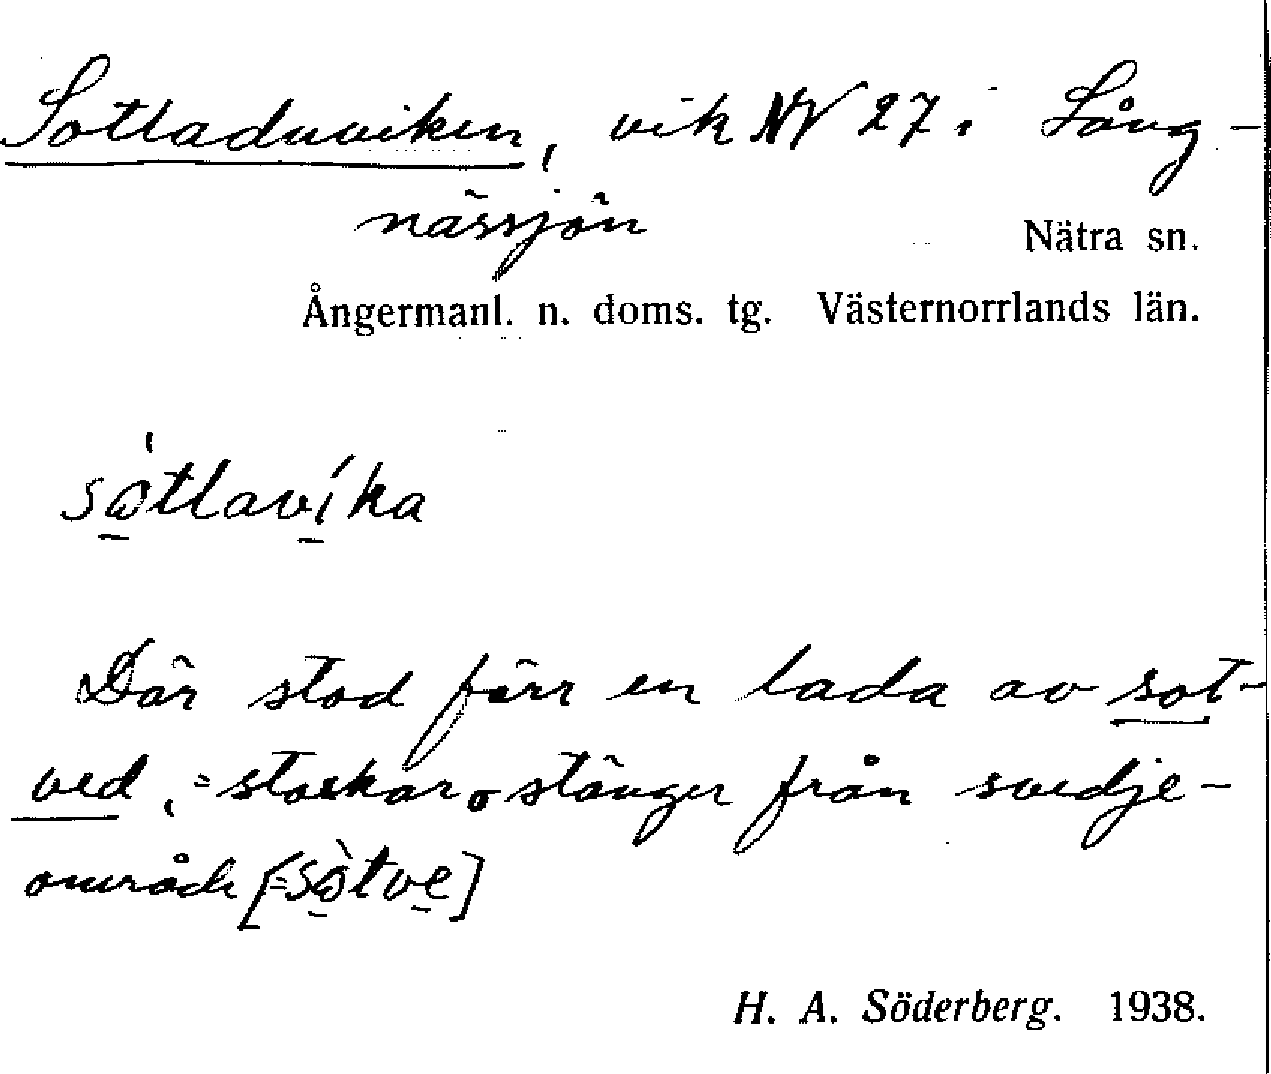 Sotladuviken, vik NV 27 i Lång-
nässjön
Nätra sn.
Ångermanl. n. doms. tg. Västernorrlands län.
sòtlavíka
Där stod förr en lada av sot-
ved, = stockar o stänger från svedje-
område [= sòtve]
H. A. Söderberg. 1938.